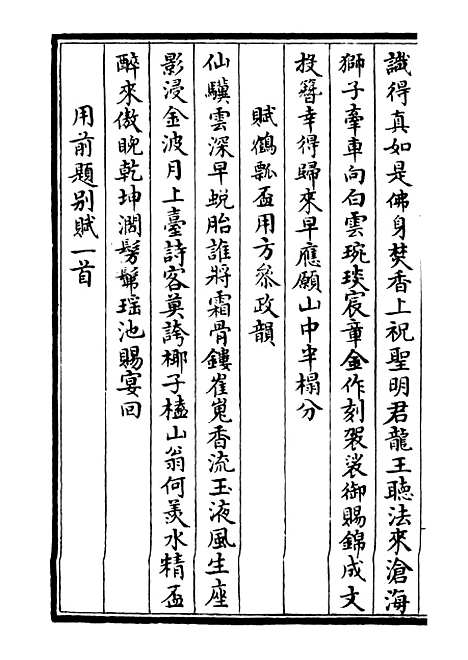 識得真如是佛身焚香上祝聖明君龍王聽法來滄海
獅子牽車向白雲琬琰宸章金作刻袈裟御賜錦成文
投簪幸得歸來早應願山中半榻分
賦鶴瓢盃用方叅政韻
仙驥雲深早蛻胎誰將霜骨鏤崔嵬香流玉液風生座
影浸金波月上臺詩客莫誇椰子榼山翁何羨水精盃
醉來傲睨乾坤濶髣髴瑶池賜宴回
用前題别賦一首